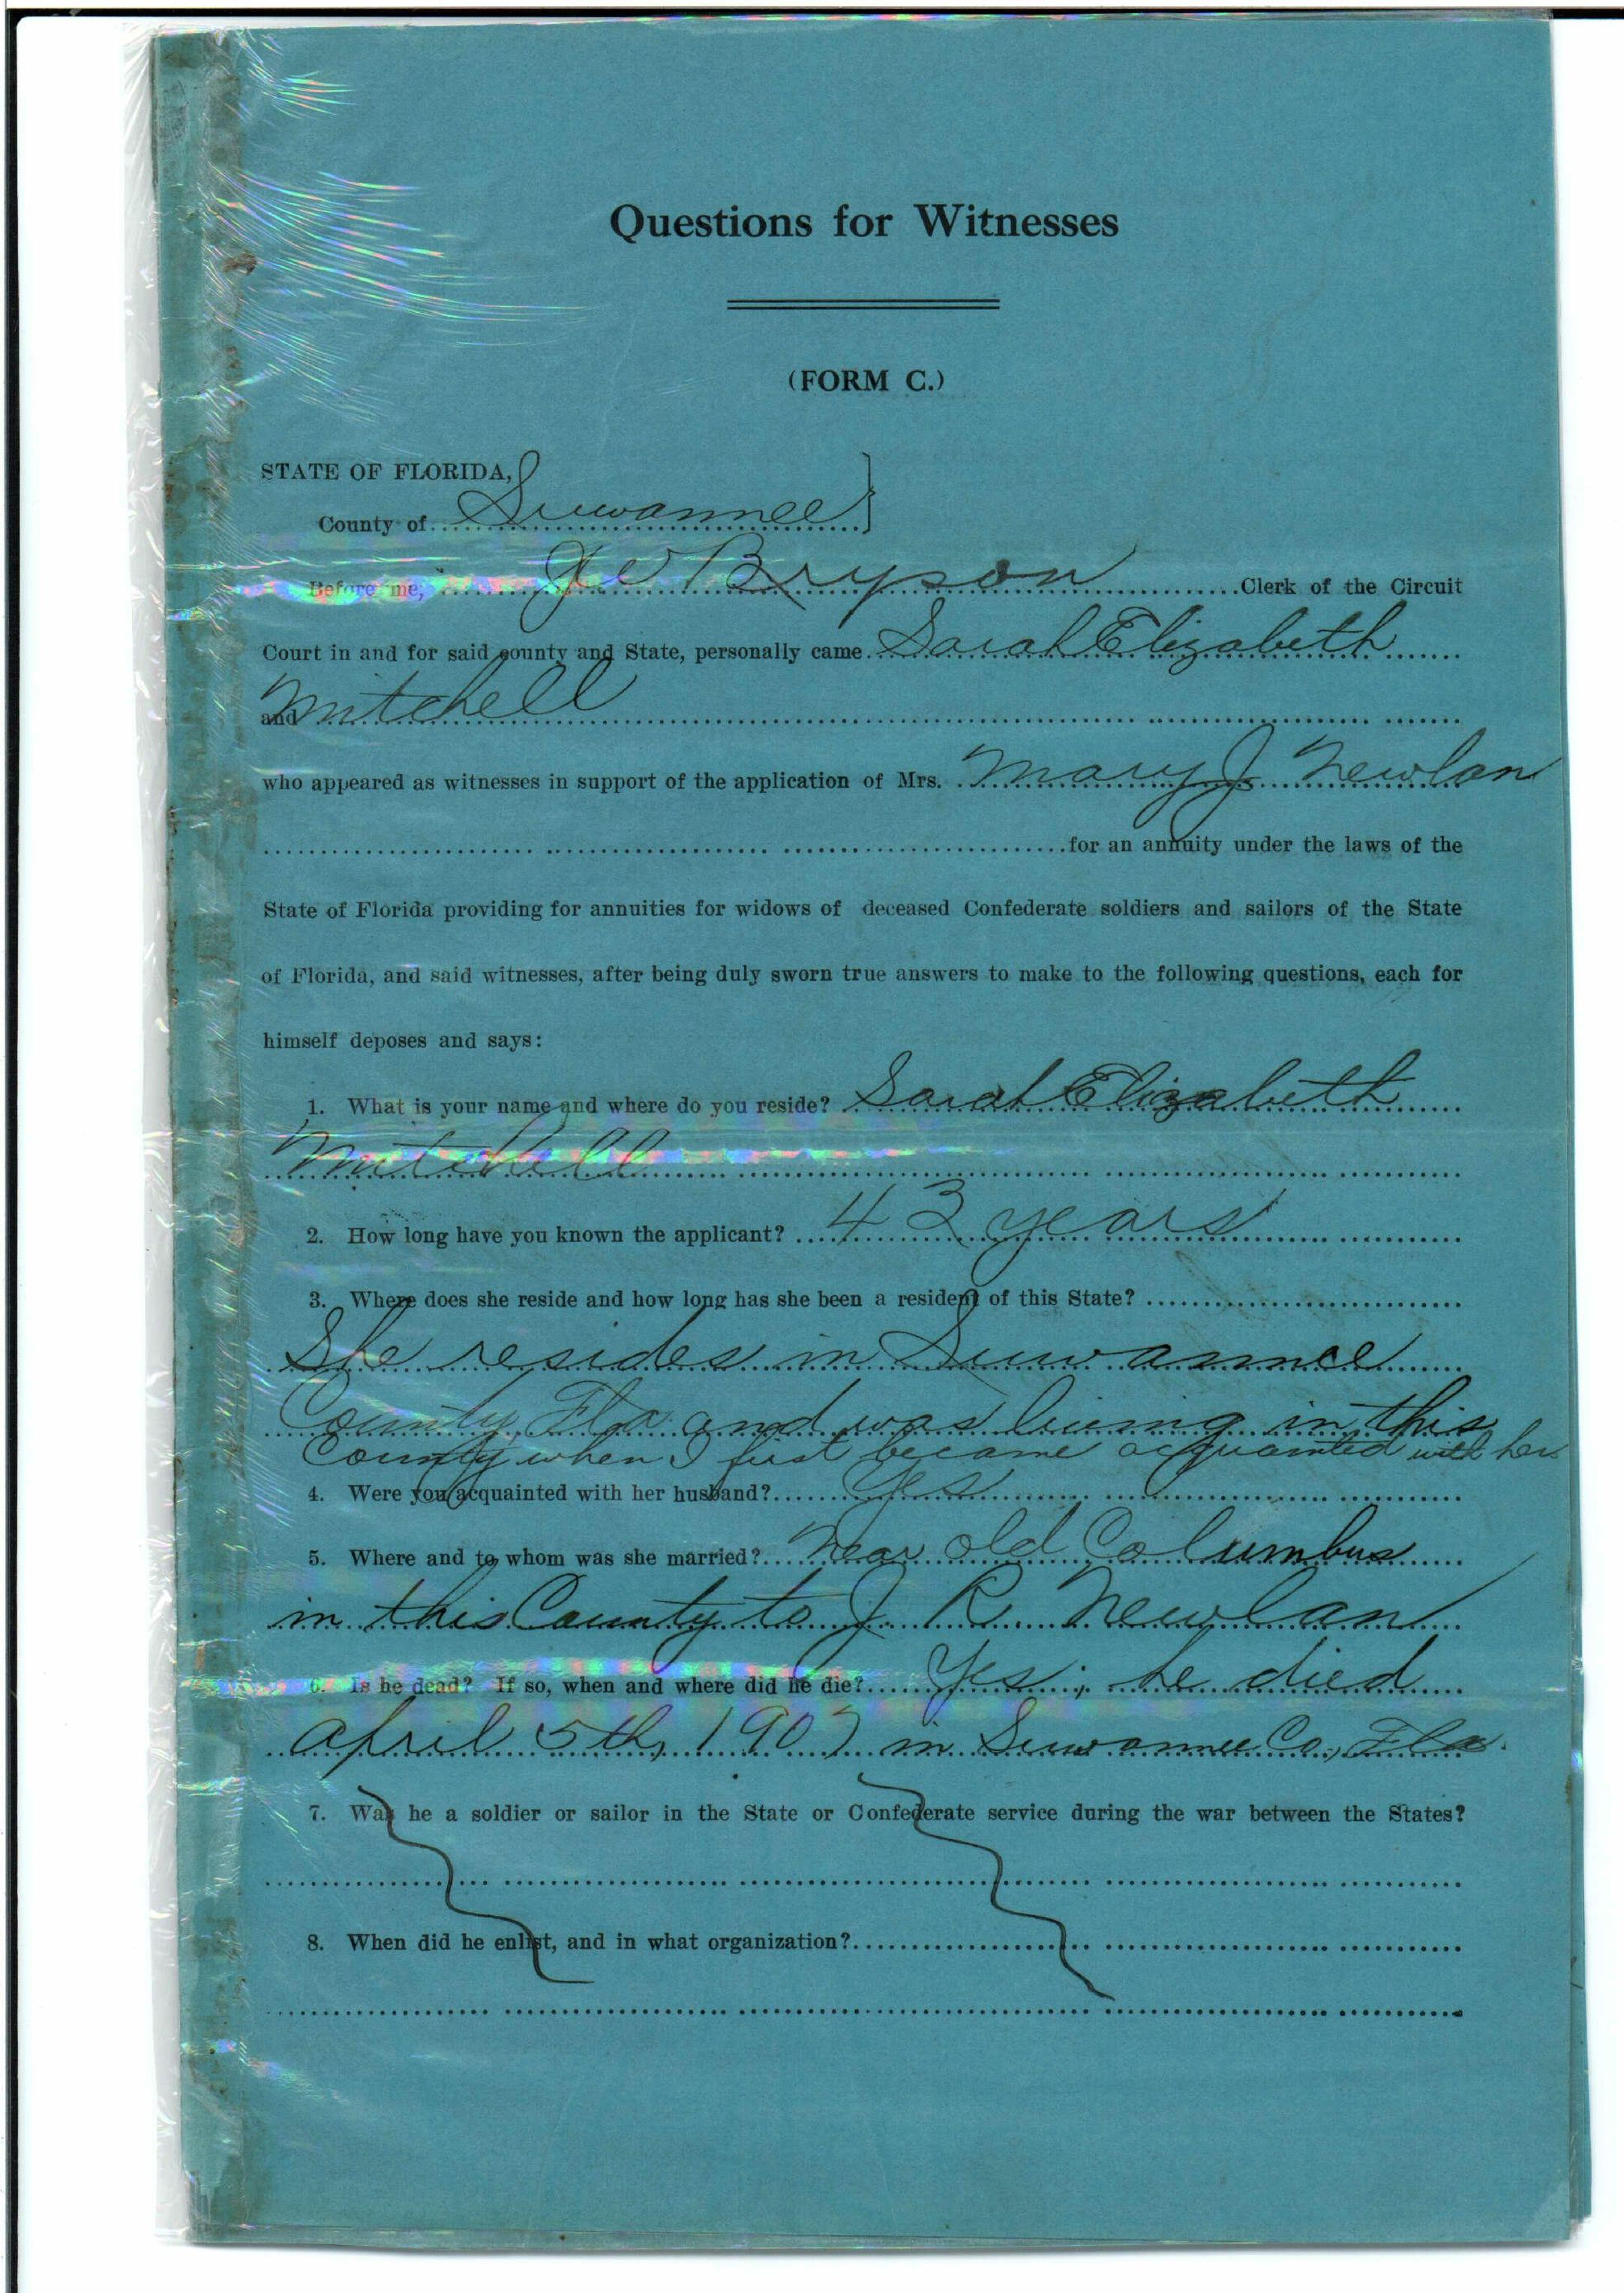 Questions for Witnesses
(FORM C.)
STATE OF FLORIDA,
County of Suwannee
Before me, J W Bryson Clerk of the Circuit
Court in and for said county and State, personally came Sarah Elizabeth
and Mitchell
who appeared as witnesses in support of the application of Mrs. Mary J Newlan
for an annuity under the laws of the
State of Florida providing for annuities for widows of deceased Confederate soldiers and sailors of the State
of Florida, and said witnesses, after being duly sworn true answers to make to the following questions, each for
himself deposes and says:
1. What is your name and where do you reside? Sarah Elizabeth
Mitchell
2. How long have you known the applicant? 43 years
3. Where does she reside and how long has she been a resident of this State?
She resides in Suwannee
County, Fla and was living in this
County when I first became acquainted with her
4. Were you acquainted with her husband? Yes
5. Where and to whom was she married? Near old Columbus
in this County to J. R. Newlan
6. Is he dead? If so, when and where did he die? Yes; he died
April 5th, 1907 in Suwannee Co., Fla.
7. Was he a soldier or sailor in the State or Confederate service during the war between the States?
8. When did he enlist, and in what organization?